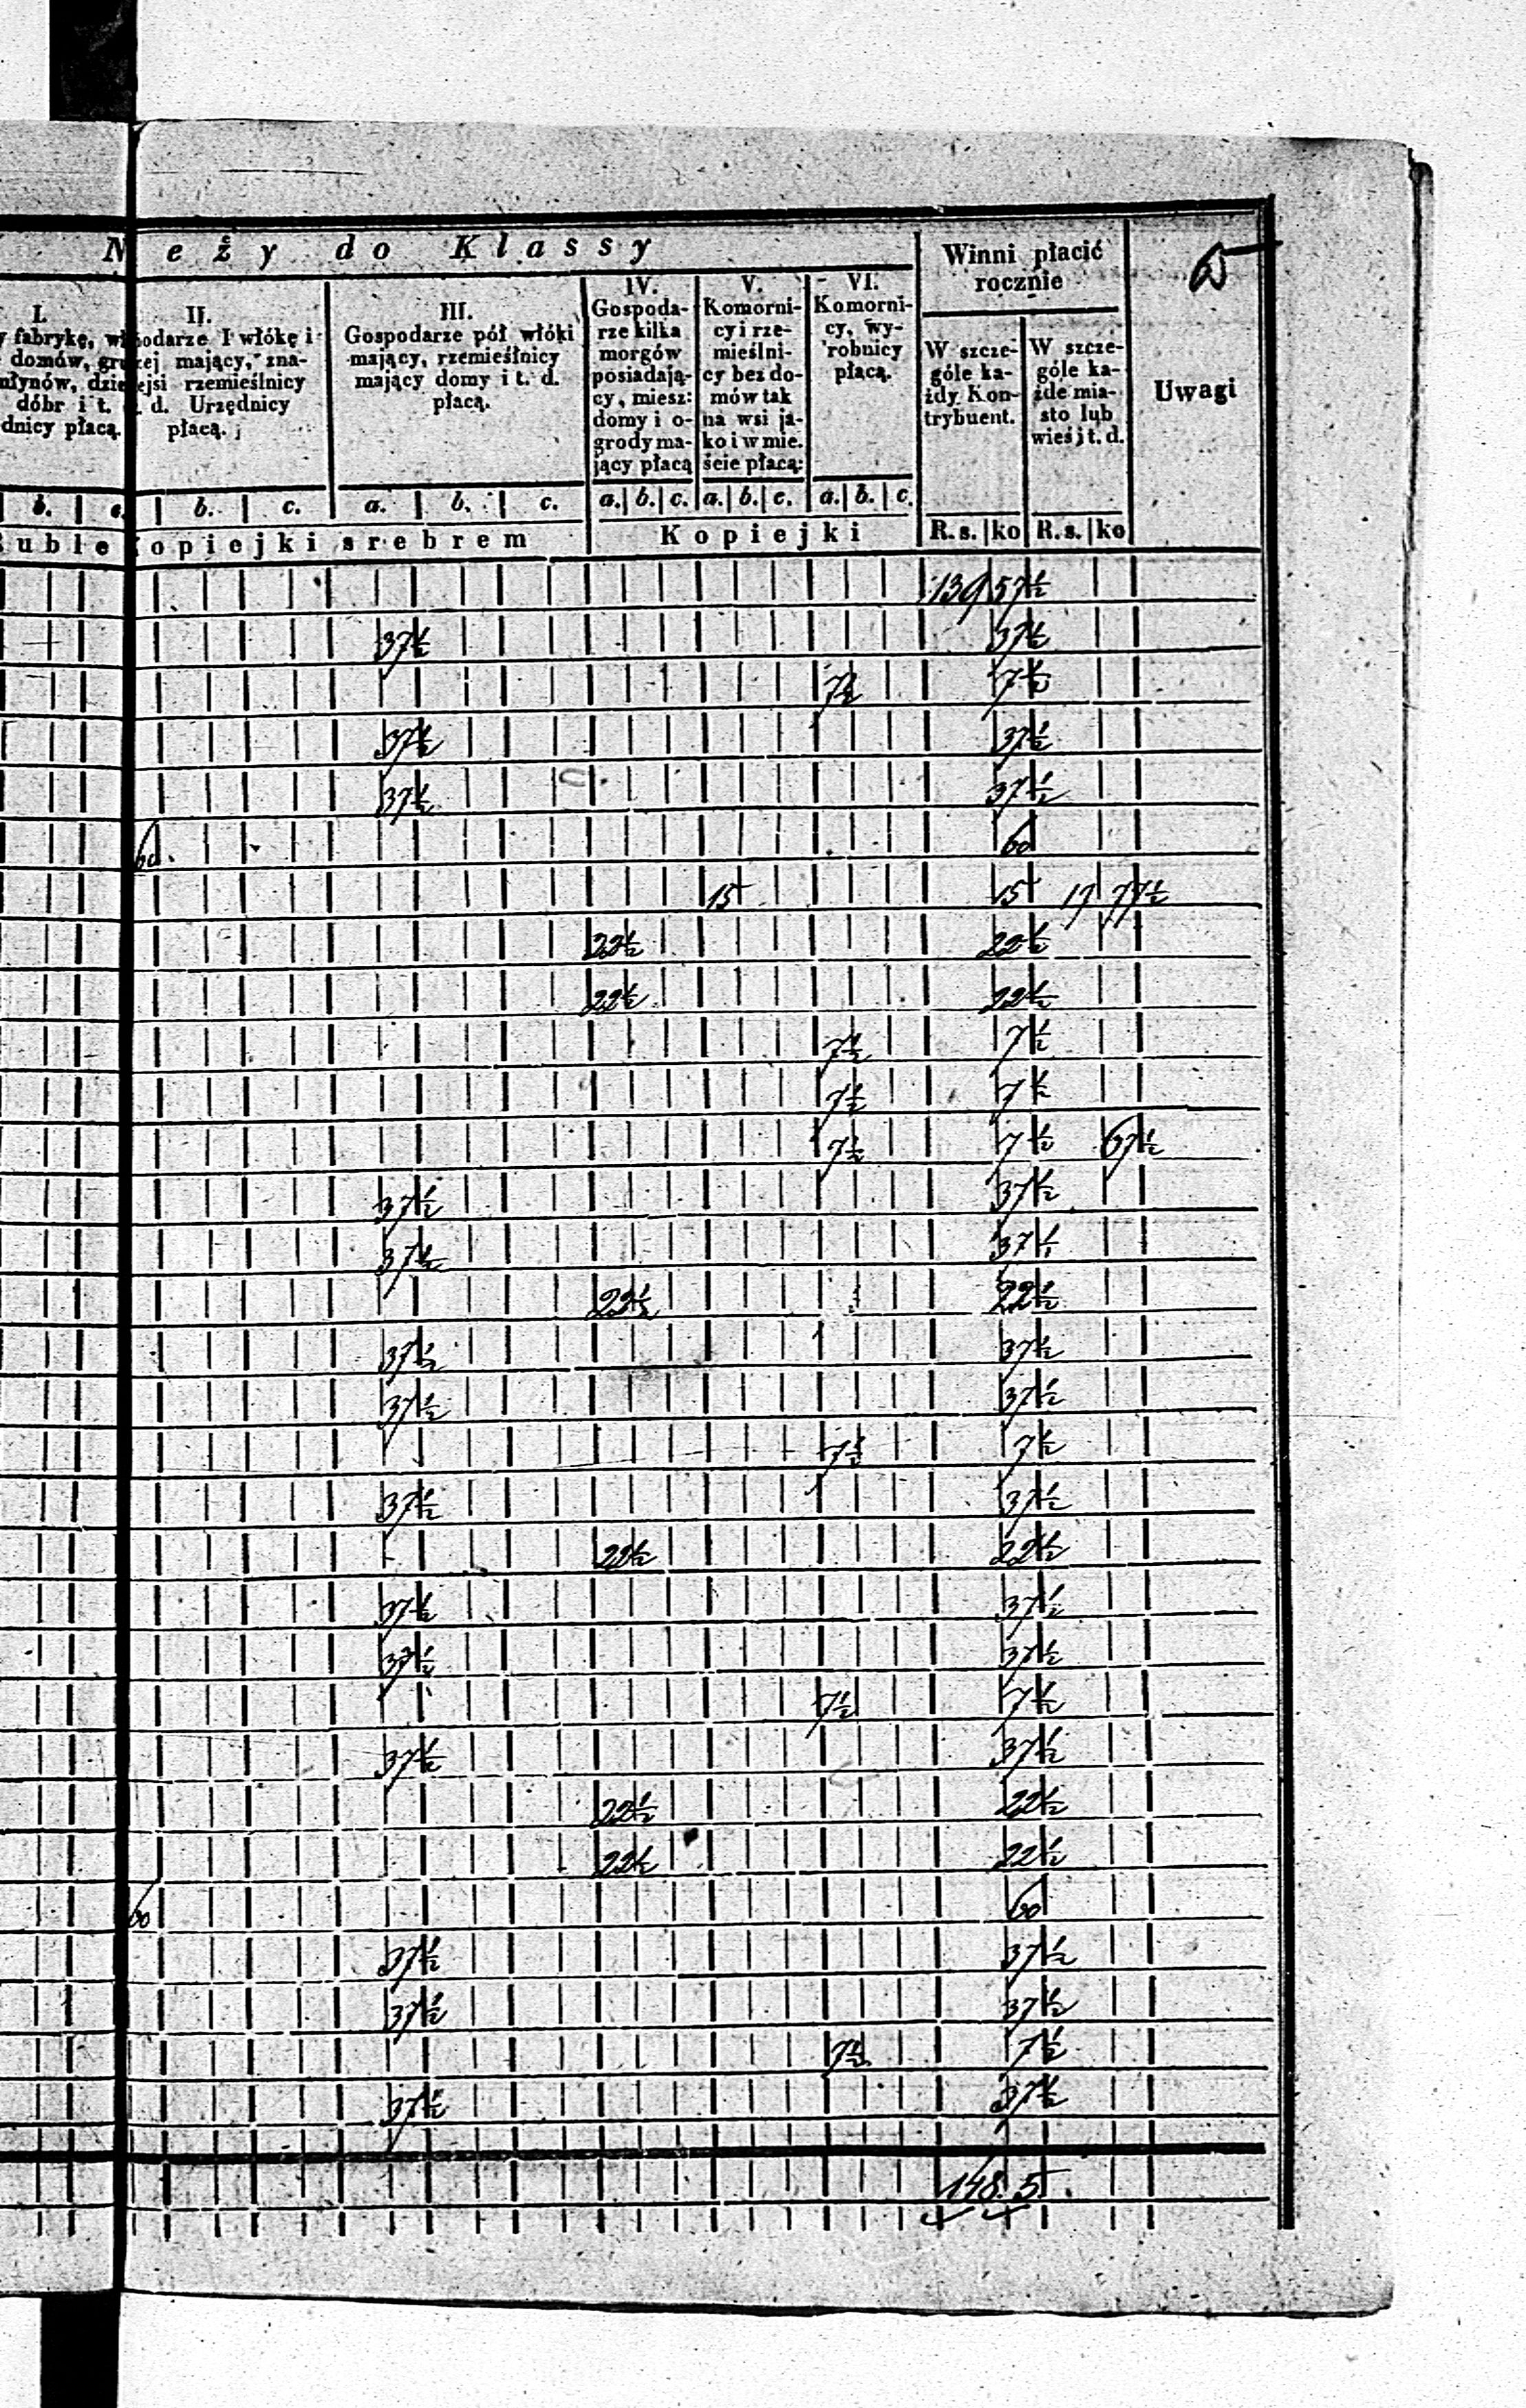 N eży do Klassy
Winni płacić
rocznie
I.
fabrykę, wł
domów, gru
młynów, dzie
dóbr i t. d.
dnicy płacą.
II.
odarze I włókę i
ej mający, zna-
jsi rzemieślnicy
d. Urzędnicy
płacą.
III.
Gospodarze pół włóki
mający, rzemieślnicy
mający domy i t. d.
płacą.
IV.
Gospoda-
rze kilka
morgów
posiadają-
cy, miesz:
domy i o-
grody ma-
jący płacą
V.
Komorni-
cy i rze-
mieślni-
cy bez do-
mów tak
na wsi ja-
ko i w mie.
ście płacą:
VI.
Komorni-
cy, wy-
robnicy
płacą.
W szcze-
góle ka-
żdy Kon-
trybuent.
W szcze-
góle ka-
żde mia-
sto lub
wieś i t. d.
Uwagi
b. c. b. c. a. b. c. a. b. c. a. b. c. a. b. c.
uble opiejki srebrem Kopiejki R.s. ko R.s. ko
139 57½
37½ 37½
7½ 7½
37½ 37½
37½ 37½
60 60
15 15 17 77½
22½ 22½
22½ 22½
7½ 7½
7½ 7½
7½ 7½ 67½
37½ 37½
37½ 37½
22½ 22½
37½ 37½
37½ 37½
7½ 7½
37½ 37½
22½ 22½
37½ 37½
37½ 37½
7½ 7½
37½ 37½
22½ 22½
22½ 22½
60 60
37½ 37½
37½ 37½
7½ 7½
37½ 37½
148. 5.